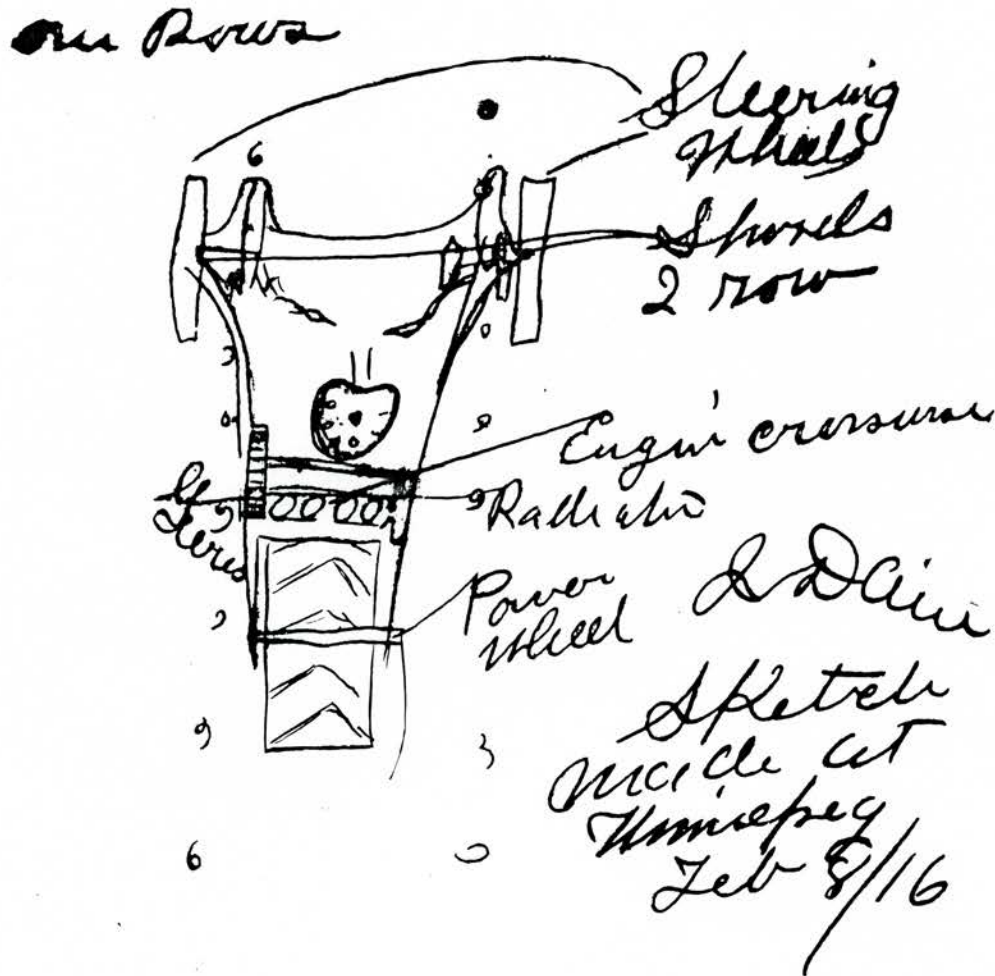 Rows
Steering
Wheels
Shovels
2 row
Engin
Radiator
Geres
Power
Wheel
Dain
Sketch
made at
Winnipeg
Feb 8/16